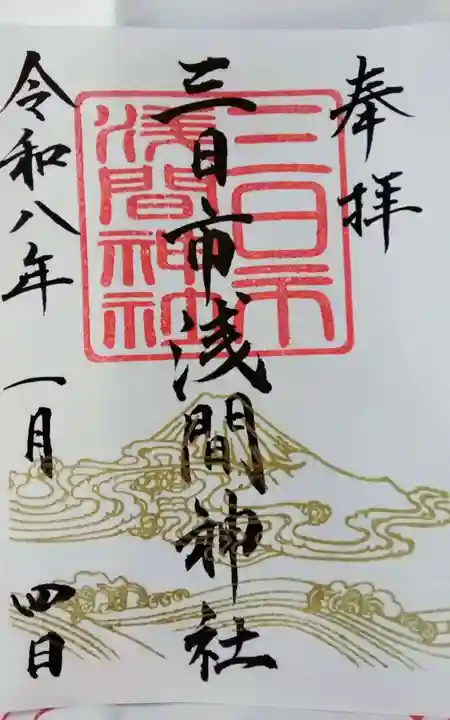 奉拝
三日市浅間神社
三日市
浅間神社
令和八年一月四日